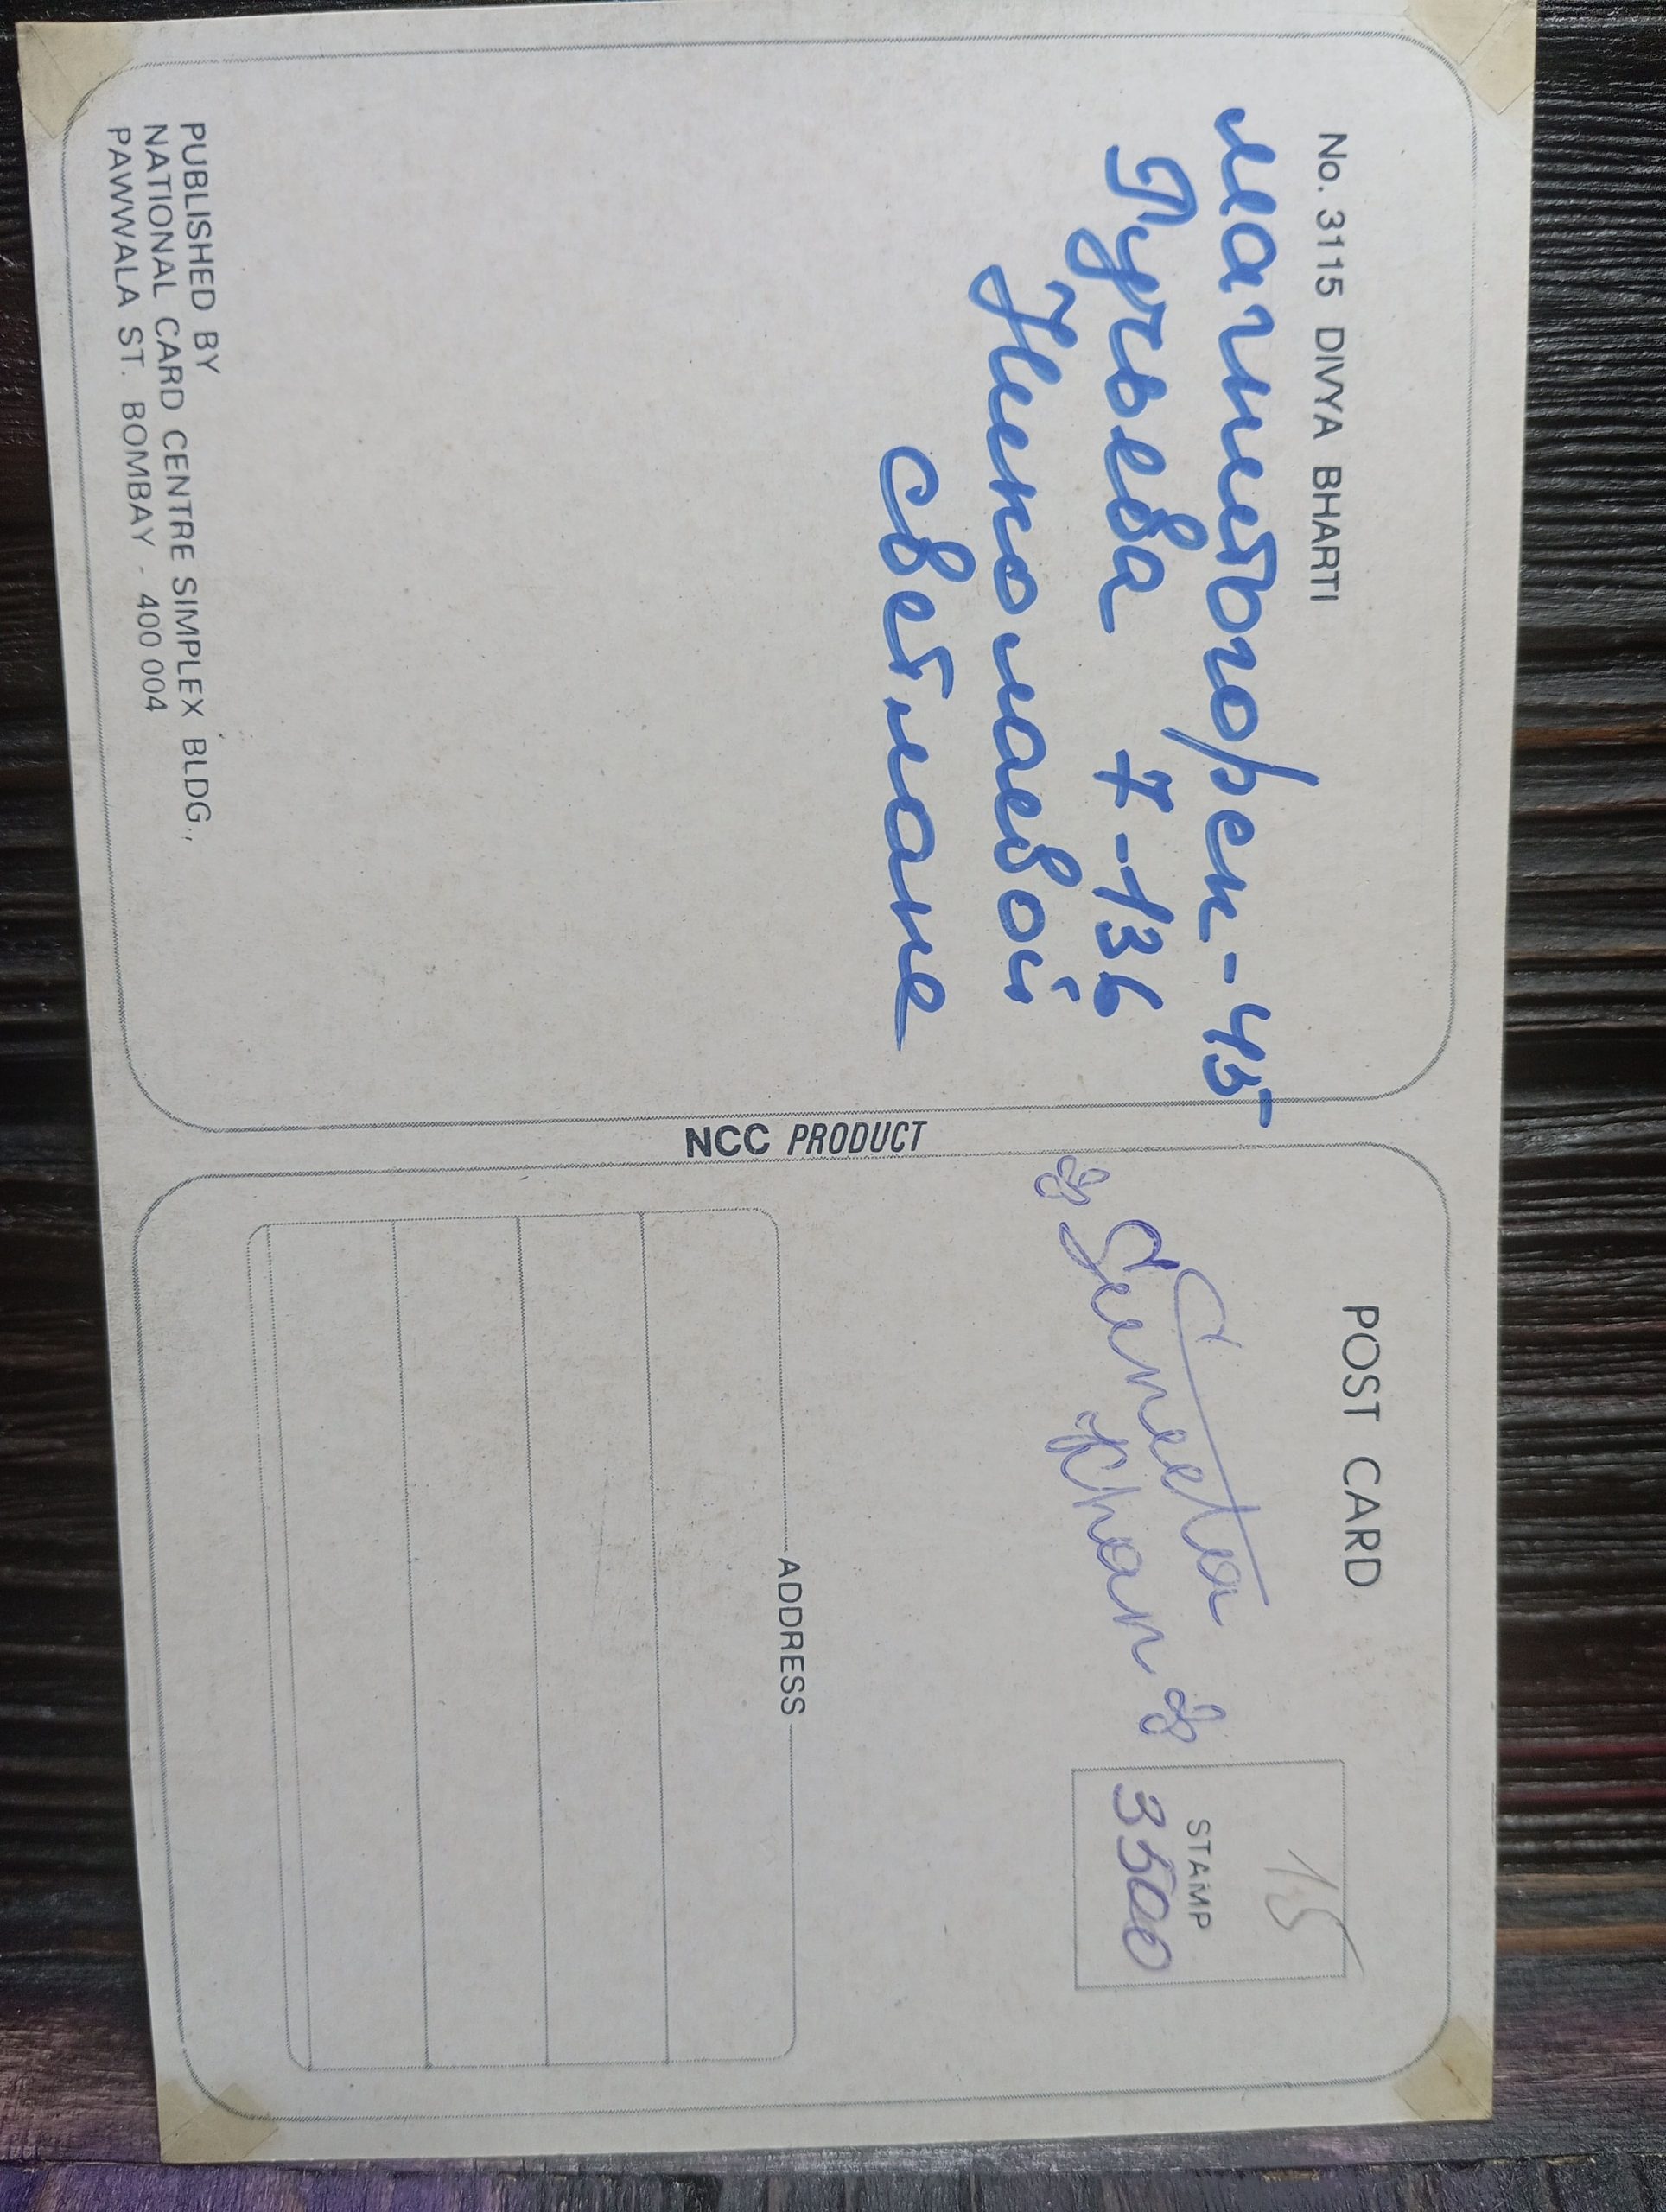 No. 3115 DIVYA BHARTI
Магнитогорск-45
Пугьева 7-136
Николаевой
Светлане
PUBLISHED BY
NATIONAL CARD CENTRE SIMPLEX BLDG.,
PAWWALA ST. BOMBAY - 400 004
NCC PRODUCT
POST CARD
Suneeta
Khan
15
STAMP
3500
ADDRESS